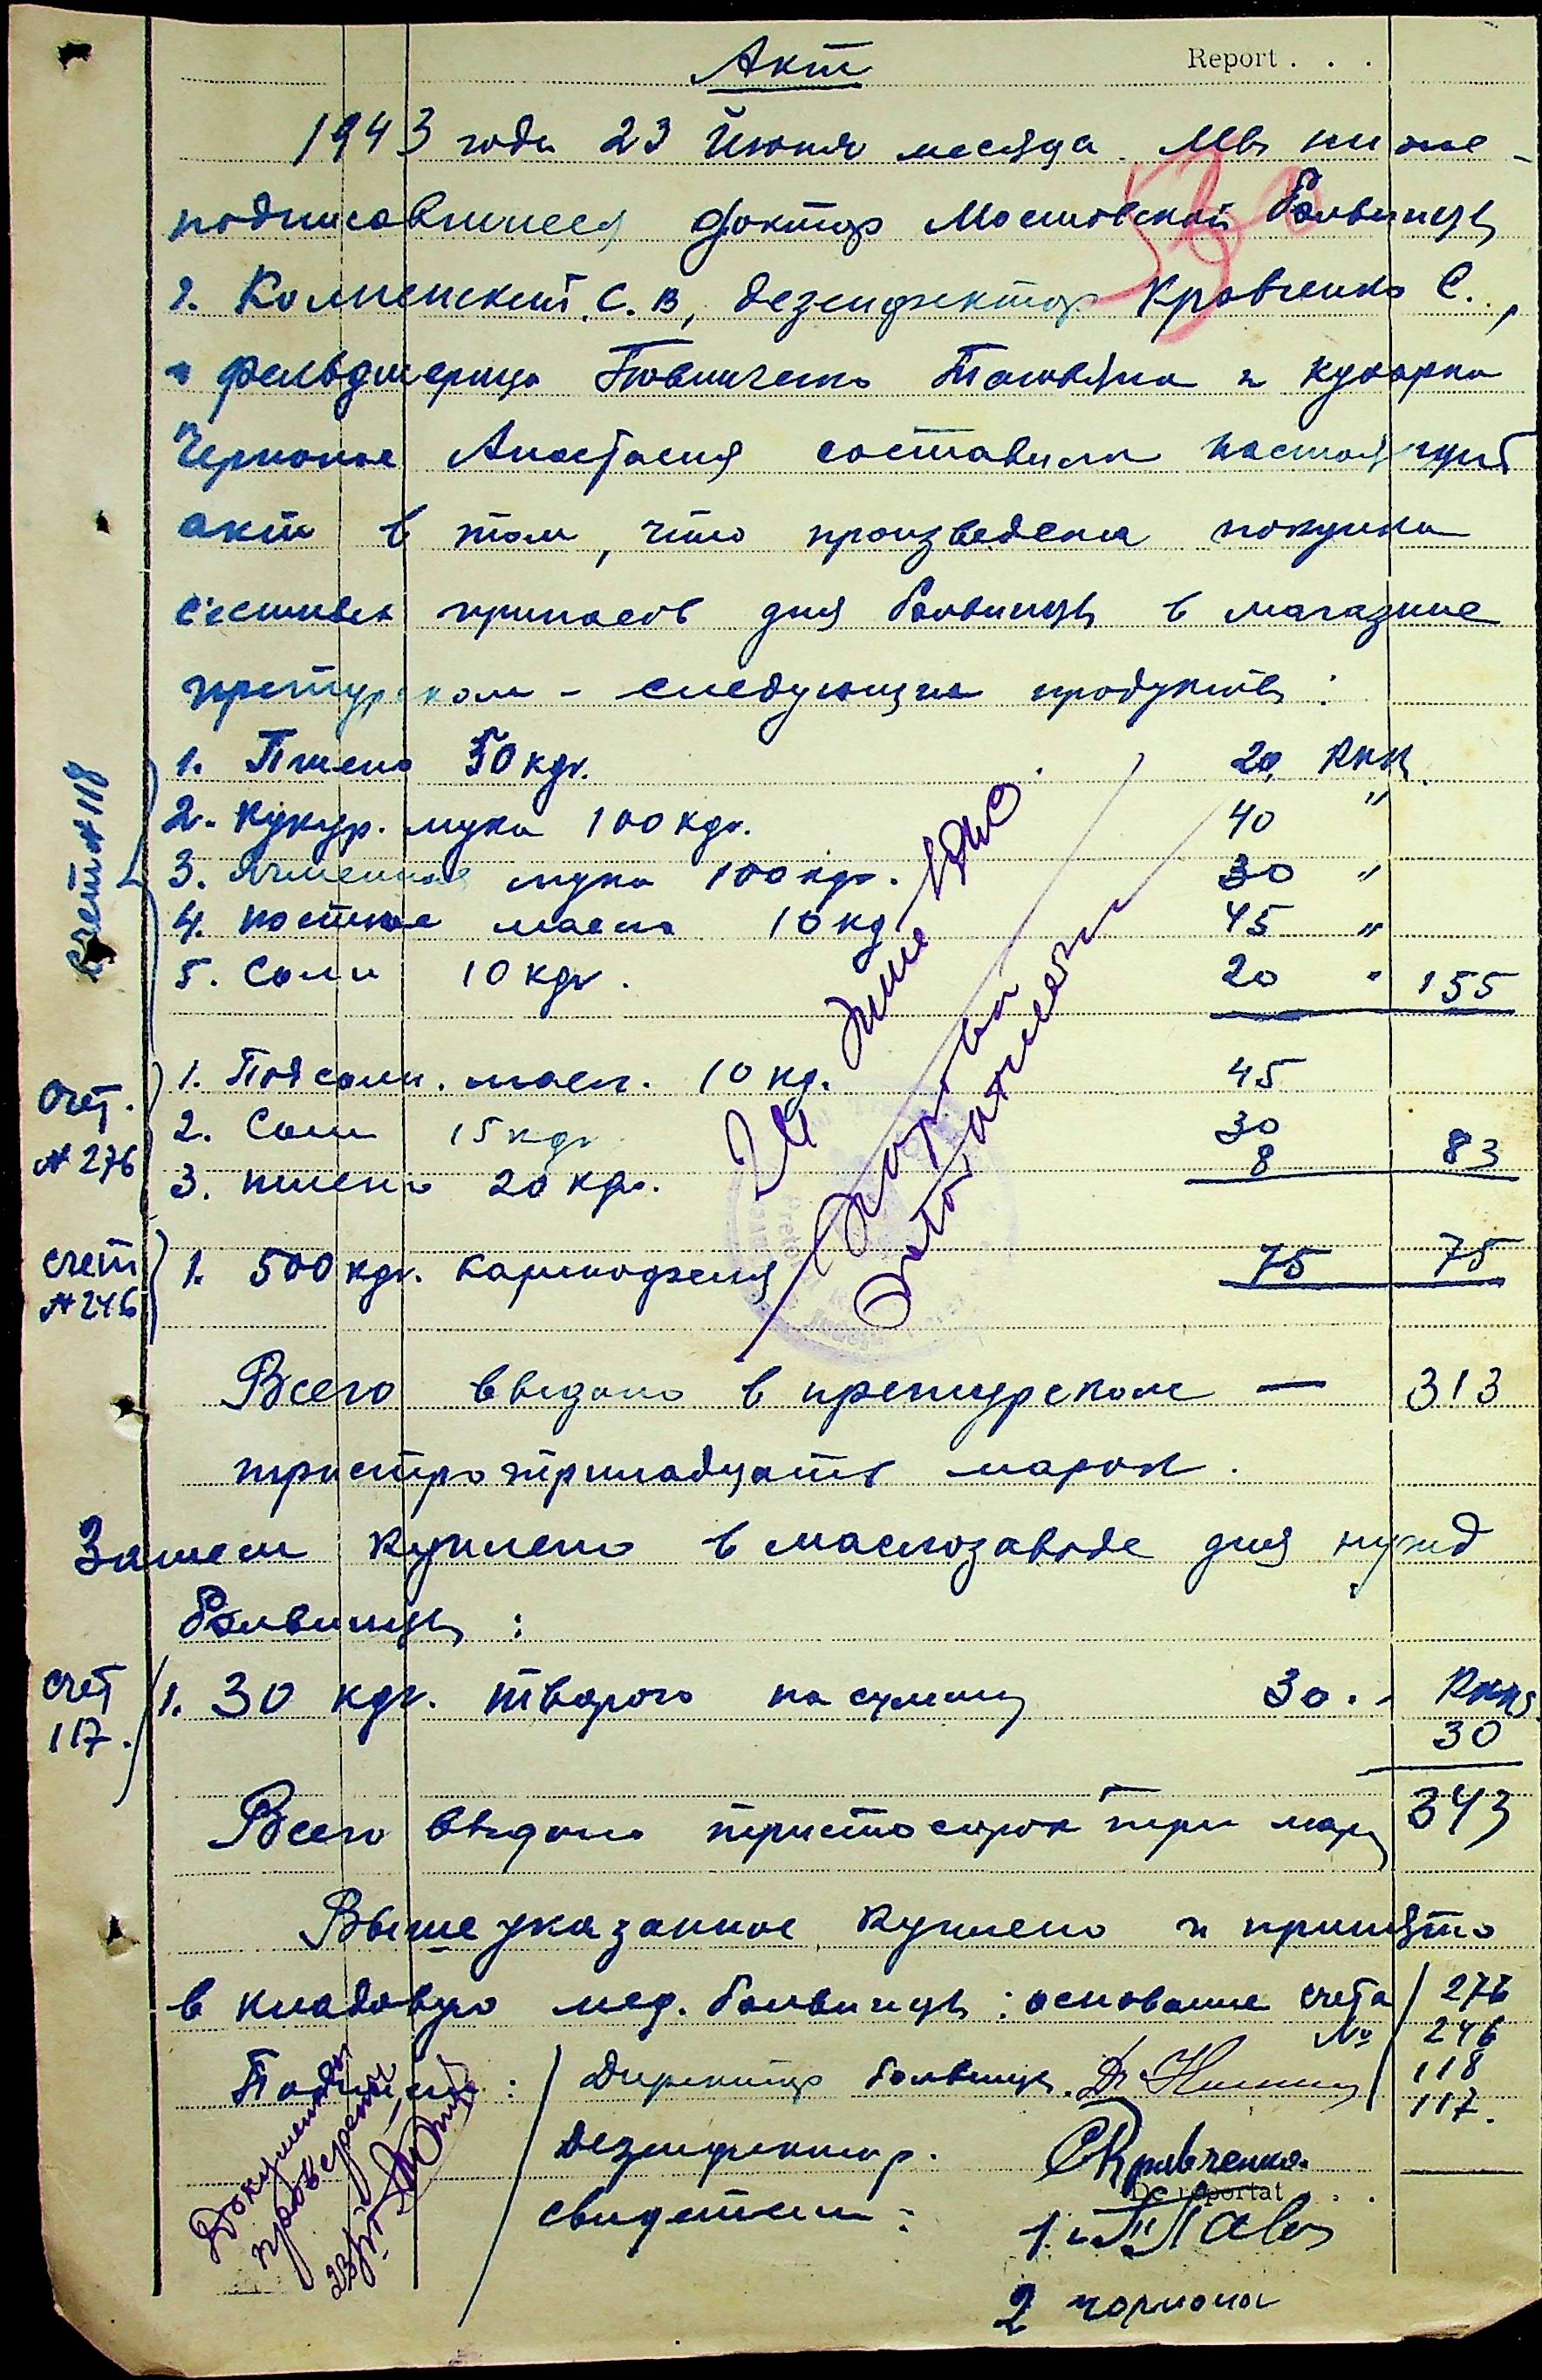 Report . . .
Акт
1943 года 23 Июня месяца. Мы ниже-
подписавшиеся доктор Мостовской больницы
г. С. В, дезенфектор Кравченко С.,
и фельдшерица Татьяна и кухарка
Анастасия составили настоящий
акт в том, что произведена покупка
с'естных припасов для больницы в магазине
претурском - следующие продукты :
Счет № 118
1. Пшено 50 кгр. 20 Rкк.
2. Кукур. мука 100 кгр. 40 "
3. Ячменная мука 100 кгр. 30 "
4. постное масло 10 кг 45 "
5. Соли 10 кгр. 20 " 155
Счет. № 276
1. Подсолн. масл. 10 кг. 45
2. Соли 15 кгр 30
3. пшено 20 кгр. 8 83
счет № 246
1. 500 кгр. картофеля 75 75
Всего выдано в претурском — 313
тристо тринадцать марок.
Затем куплено в маслозаводе для нужд
больницы :
счет 117.
1. 30 кгр. творога на сумму 30.- Rкк.
30
Всего выдано тристо сорок три мар 343
Выше указанное куплено и принято
в кладовую мед. больницы : основание счета
№ 276
246
118
117.
Подписи : Директор больницы. Dr
Дезенфектор. СКравченко.
De reportat . . .
свидетели : 1.
2
Документы
проверены